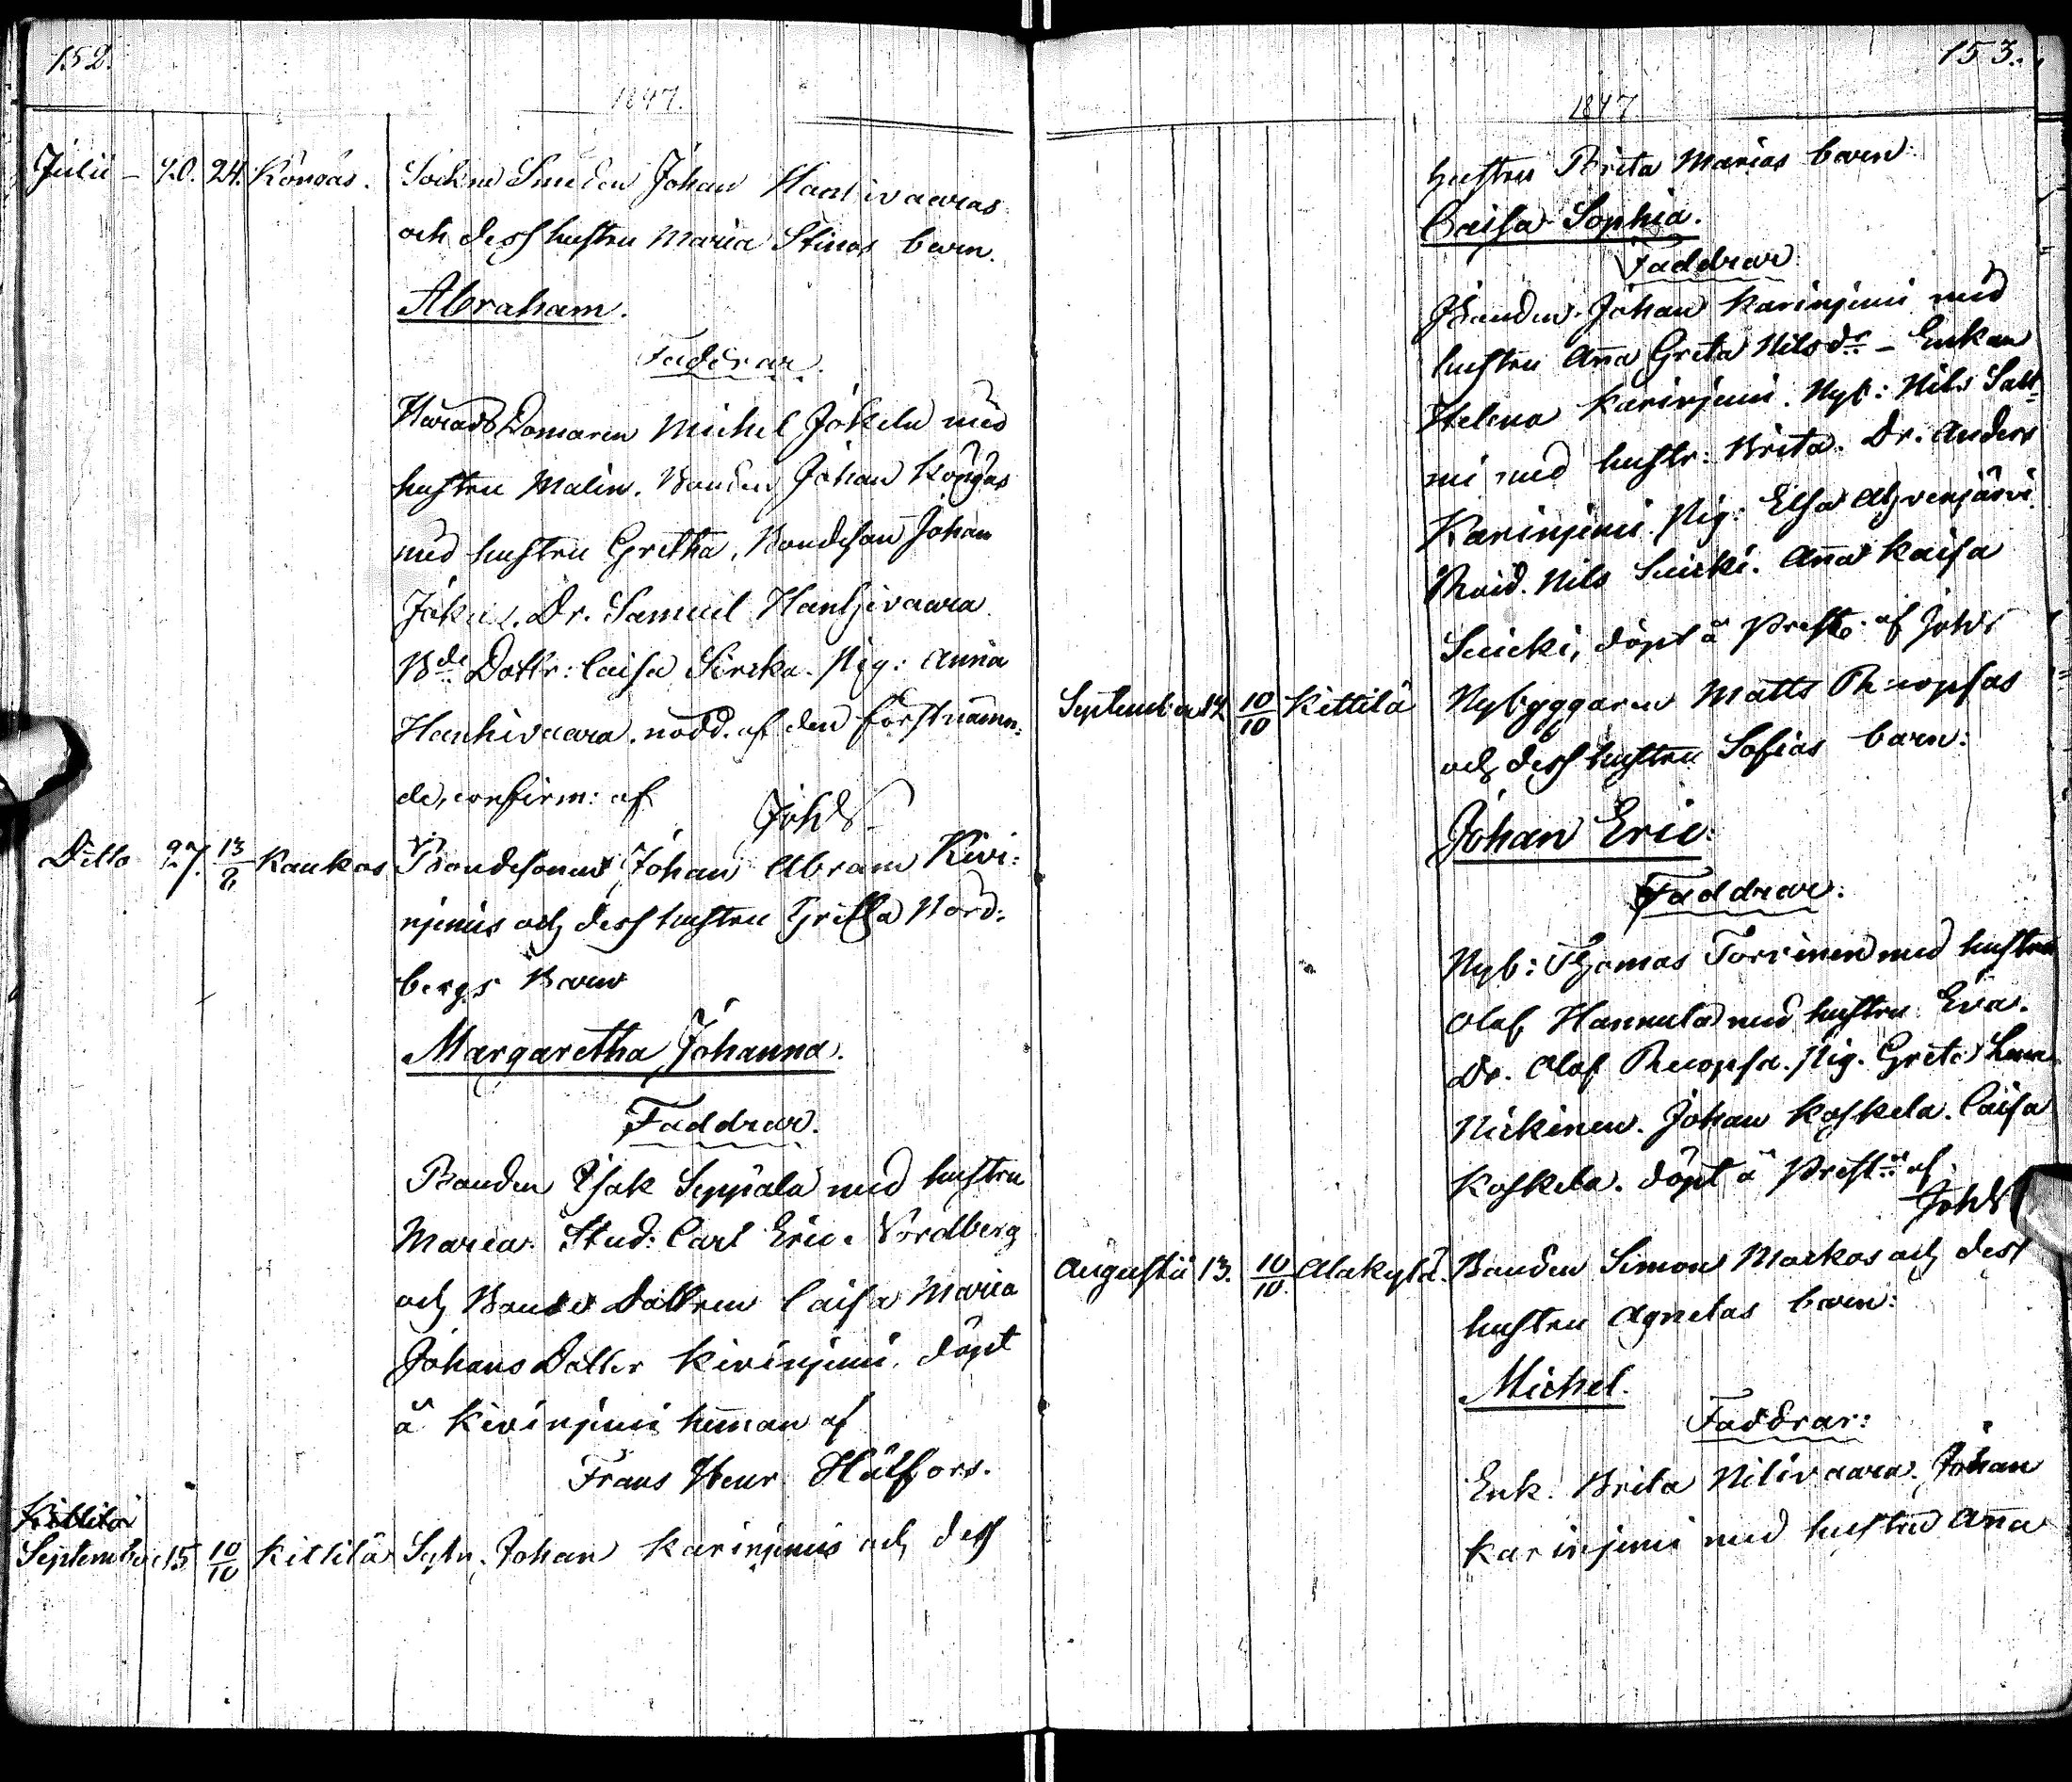 152.
1847.
Julii – 20. 24. Köngäs. Sockne Smeden Johan Hanhivaaras
och dess hustru Maria Stinas barn.
Abraham.
Faddrar.
Härads Domaren Michel Jokela med
hustru Malin. Bonden Johan Köngäs
med hustru Gretha, Bondeson Johan
Dr. Samuel Hanhivaara
Bde Dottr: Caisa Sircka. Pig: Anna
Hanhivaara. nödd. af den förstnämn:
de, confirm: af Johds
Ditto 27. 13/8 Kaukos Bondesonens Johan Abram Kivi:
njemis och dess hustru Gretha Nord:
bergs Barn
Margaretha Johanna.
Faddrar.
Bonden Isak Seppälä med hustru
Maria. Stud: Carl Eric Nordberg
och Bonde Dottren Caisa Maria
Johans Dotter Kivinjemi. döpt
å Kivinjemi heman af
Frans Henr. Hällfors.
Kittilä
September 15 10/10 Kittilä Sytn. Johan Karinjemis och dess
153.
1847
hustru Brita Marias barn:
Caisa Sophia.
Faddrar
Bonden Johan Karinjemi med
hustru Anna Greta Nilsdr – Enkan
Helena Karinjemi. Nyb: Nils Salt=
mi med hustr: Brita. Dr. Anders
Karinjemi. Pig: Elsa Ahvenjärvi
Nils Suicki. Anna Kaisa
Suicki, döpt å Prestg. af Johds
September 12 10/10 Kittilä Nybyggaren Matts Ruopsas
och dess hustru Sofias barn:
Johan Eric:
Faddrar:
Nyb: Thomas Torvinen med hustru
Olof Hannula med hustru Eva.
Dr. Olof Ruopsa. Pig. Greta
Nickinen. Johan Koskela. Caisa
Koskela. döpt å Prestg. af
Johds
Augustii 13. 10/10 Alakylä. Bonden Simon Markos och dess
hustru Agnetas barn:
Michel.
Faddrar:
Enk. Brita Nilivaara. Johan
Karinjemi med hustru Anna